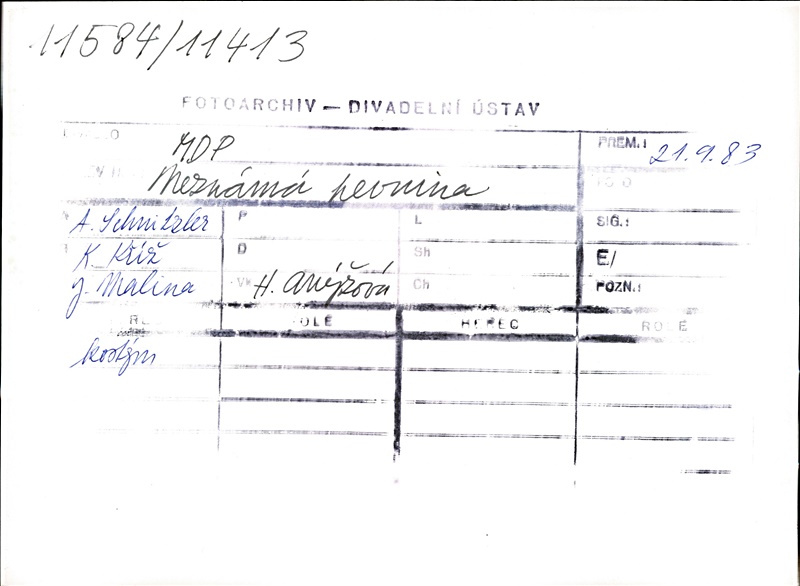 11584/11413
FOTOARCHIV — DIVADELNÍ ÚSTAV
MDP
PREM.: 21.9.83
Neznámá pevnina
A. Schnitzler P L SIG.:
K. Kříž D Sh E/
J. Malina Vk H. Anýžová Ch POZN.:
HEREC ROLE
kostým